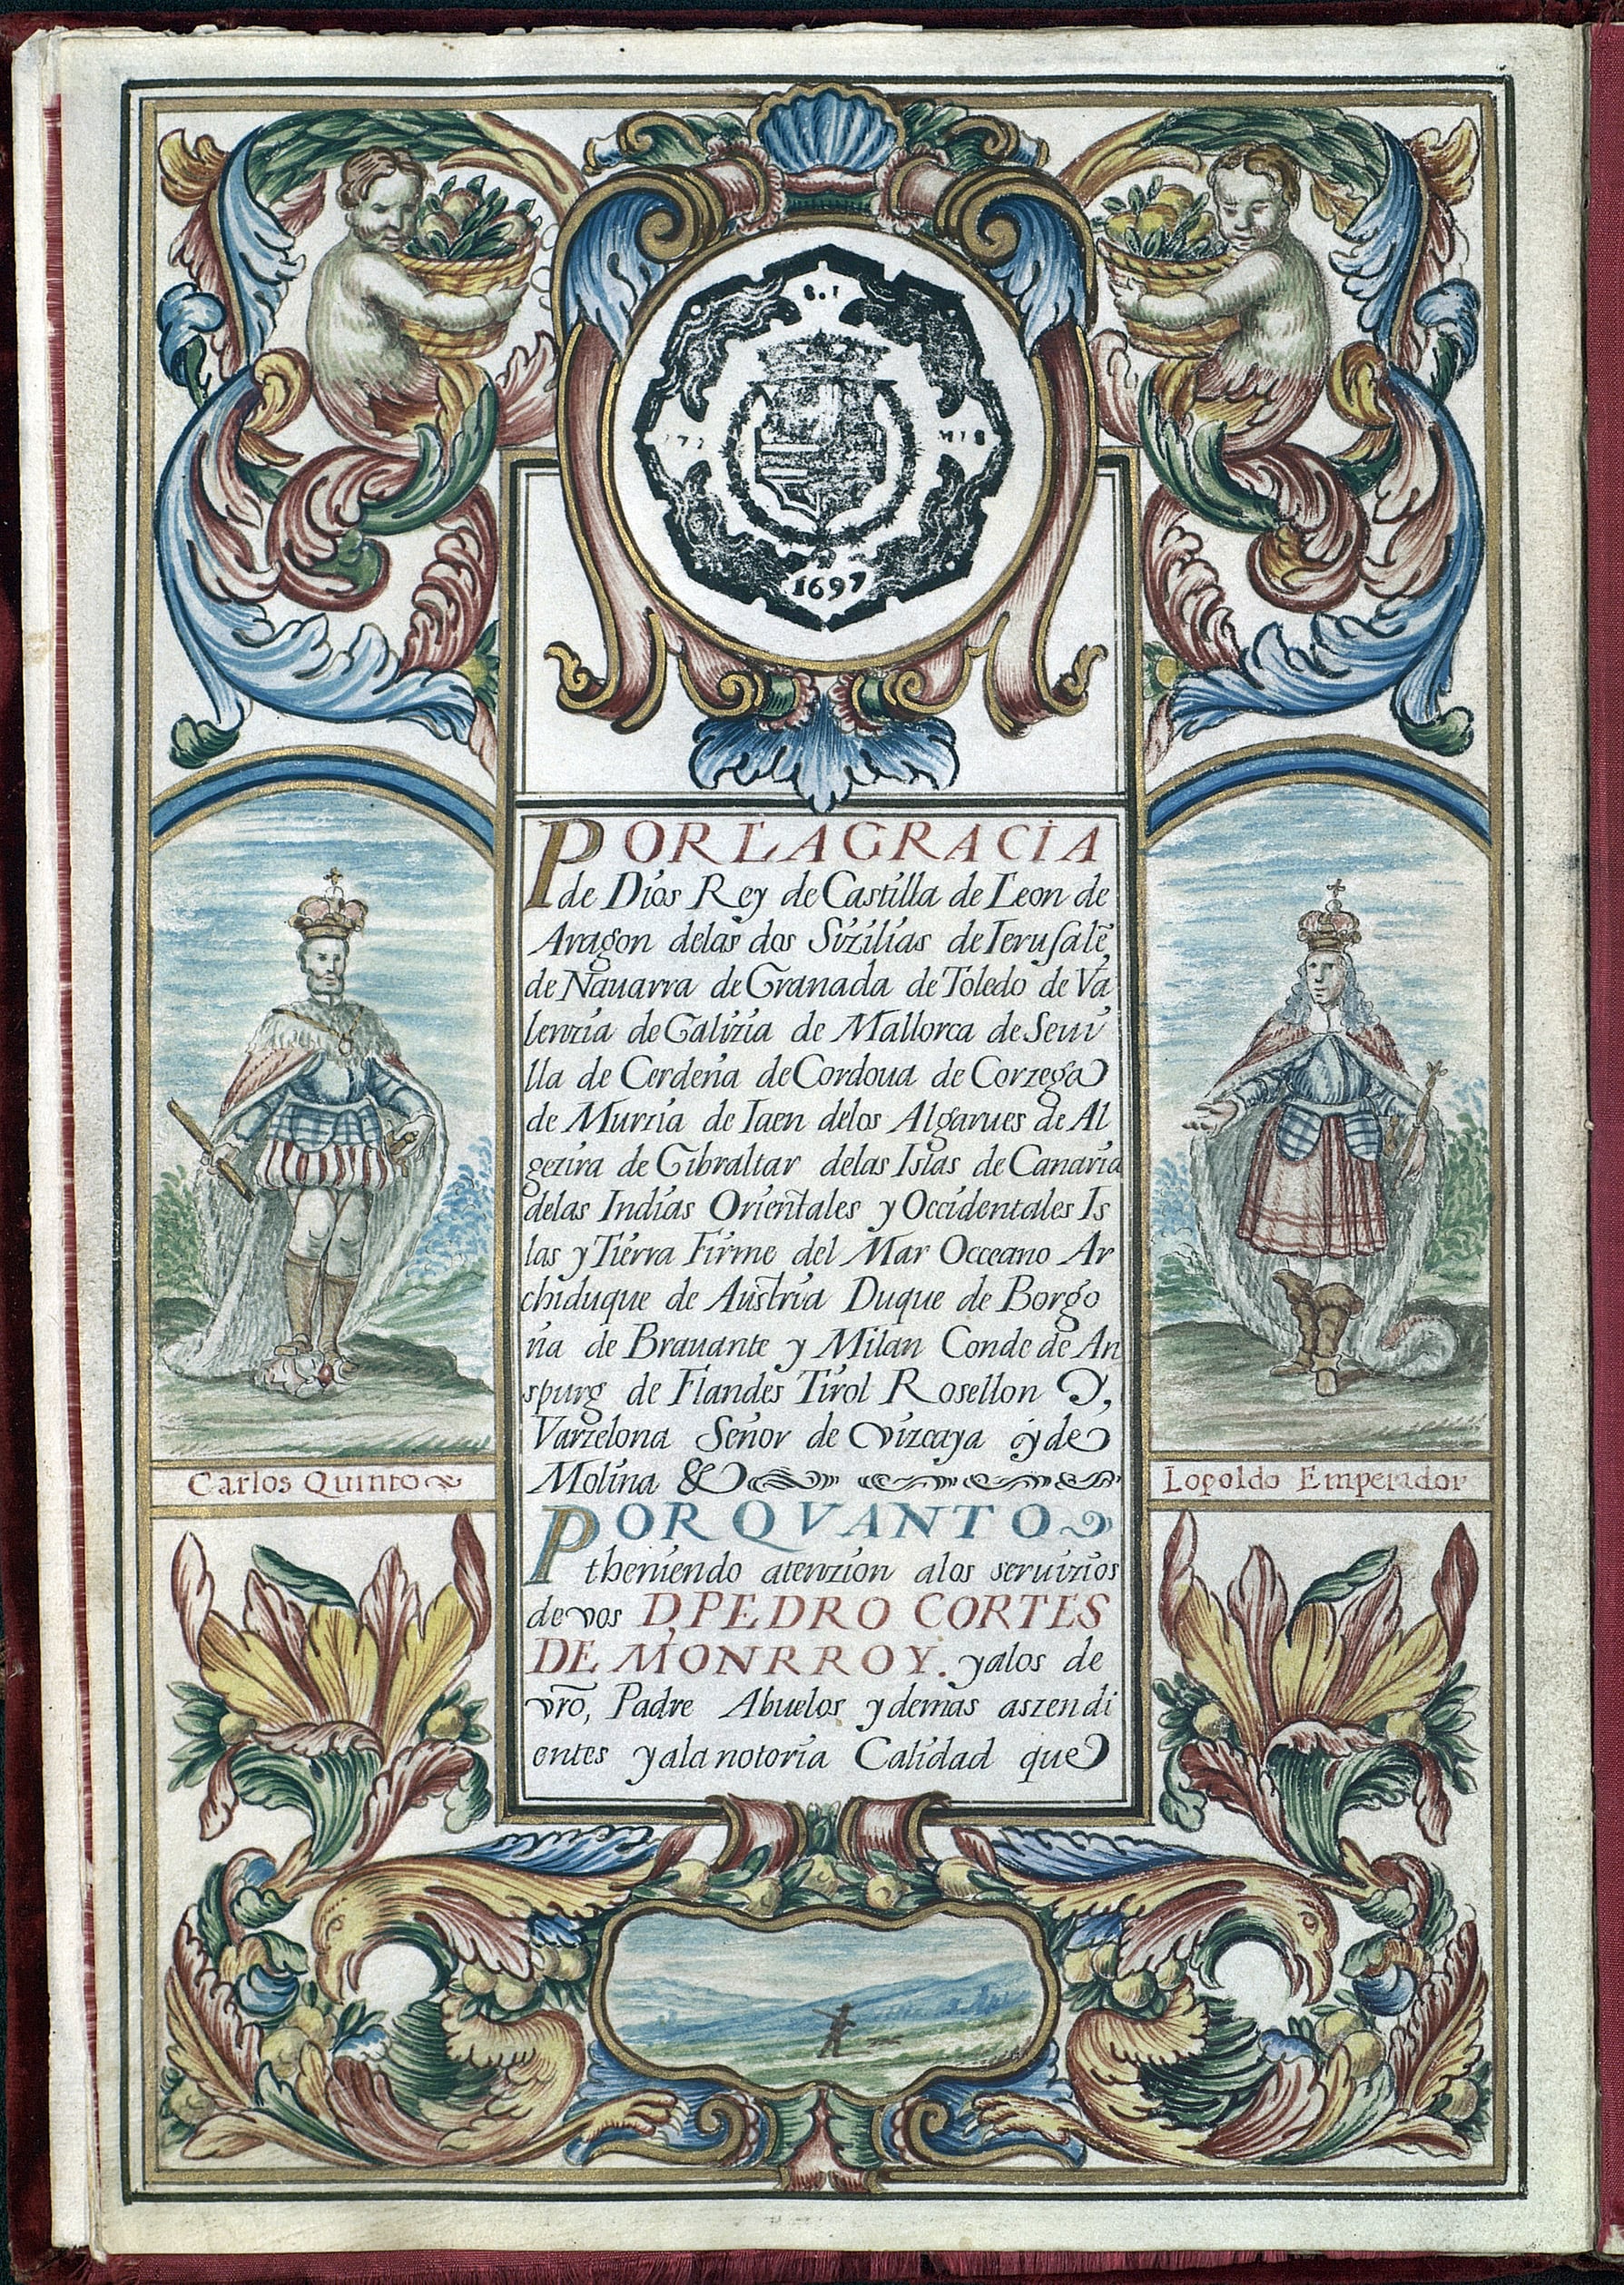 1697
POR LA GRACIA
de Dios Rey de Castilla de Leon de
Aragon delas dos Sizilias de Ierusalē
de Nauarra de Granada de Toledo de Va
lenzia de Galizia de Mallorca de Seui
lla de Cerdeña de Cordoua de Corzega
de Murzia de Iaen delos Algarues de Al
gezira de Gibraltar delas Islas de Canaria
delas Indias Orientales y Occidentales Is
las y Tierra Firme del Mar Occeano Ar
chiduque de Austria Duque de Borgo
ña de Brauante y Milan Conde de An
spurg de Flandes Tirol Rosellon Y,
Varzelona Señor de Vizcaya y de
Molina &
POR QVANTO
theniendo atenzion alos seruizios
de vos D, PEDRO CORTES
DE MONRROY. yalos de
vr̄o, Padre Abuelos y demas aszendi
entes yala notoria Calidad que
Carlos Quinto
Lopoldo Emperador